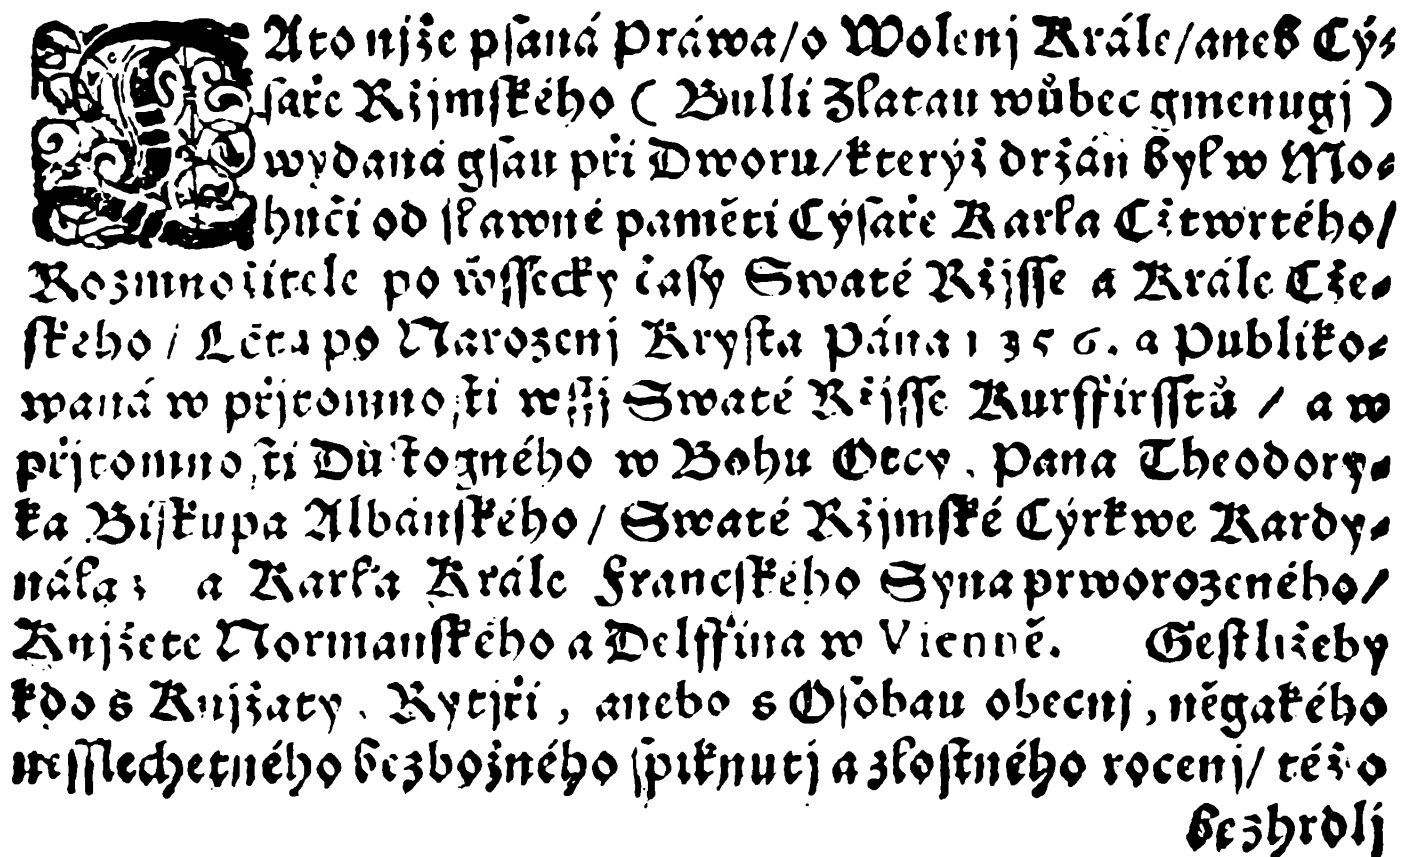 TAto njže pſaná Práwa/o Wolenj Krále/aneb Cý⸗
ſaře Ržjmſkého ( Bulli Zlatau wůbec gmenugj )
wydaná gſau při Dworu/kterýž držán byl w Mo⸗
huči od ſlawné paměti Cýſaře Karla Cžtwrtého/
Rozmnožitele po wſſecky čaſy Swaté Ržjſſe a Krále Cže⸗
ſkého / Léta po Narozenj Kryſta Pána 1356. a Publiko⸗
waná w přjtomnoſti wſſj Swaté Ržjſſe Kurffirſſtů / a w
přjtomnoſti Důſtogného w Bohu Otcy, Pana Theodory⸗
ka Biſkupa Albánſkého/ Swaté Ržjmſké Cýrkwe Kardy⸗
nála; a Karla Krále Francſkého Syna prworozeného/
Knjžete Normanſkého a Delffina w Vienně. Geſtližeby
kdo s Knjžaty, Rytjři, anebo s Oſobau obecnj, něgakého
neſſlechetného bezbožného ſpiknutj a zloſtného rocenj/ též o
bezhrdlj